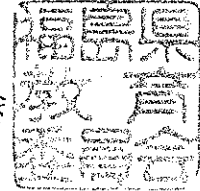 福島県
教育
委員会